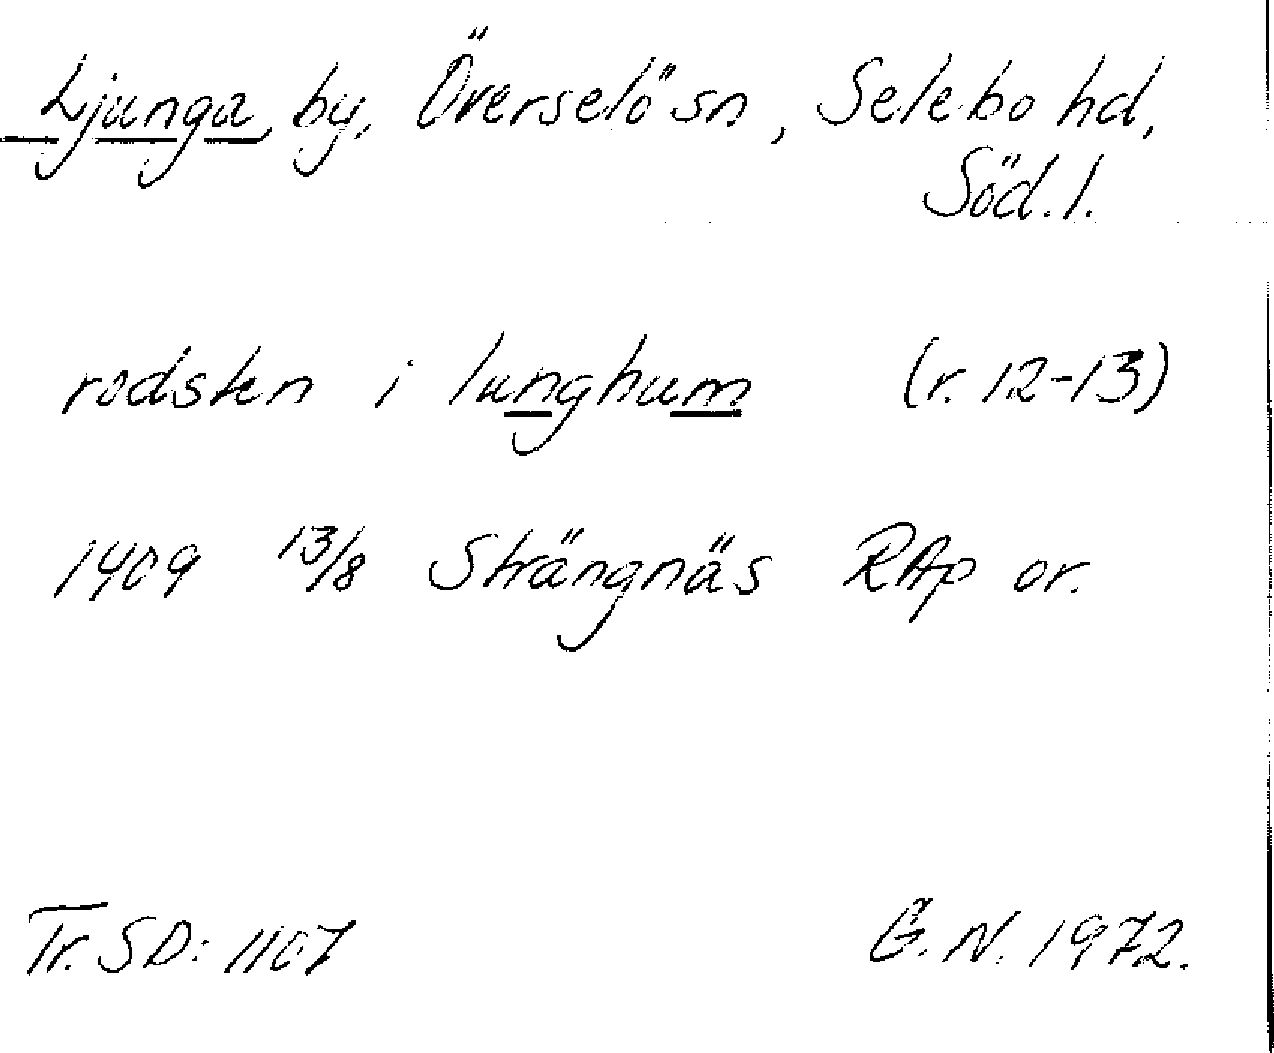 Ljunga, by, Överselö sn, Selebo hd,
Söd. l.
rodsten i lunghum (r. 12-13)
1409 13/8 Strängnäs RAp or.
Tr. SD: 1107
G. N. 1972.